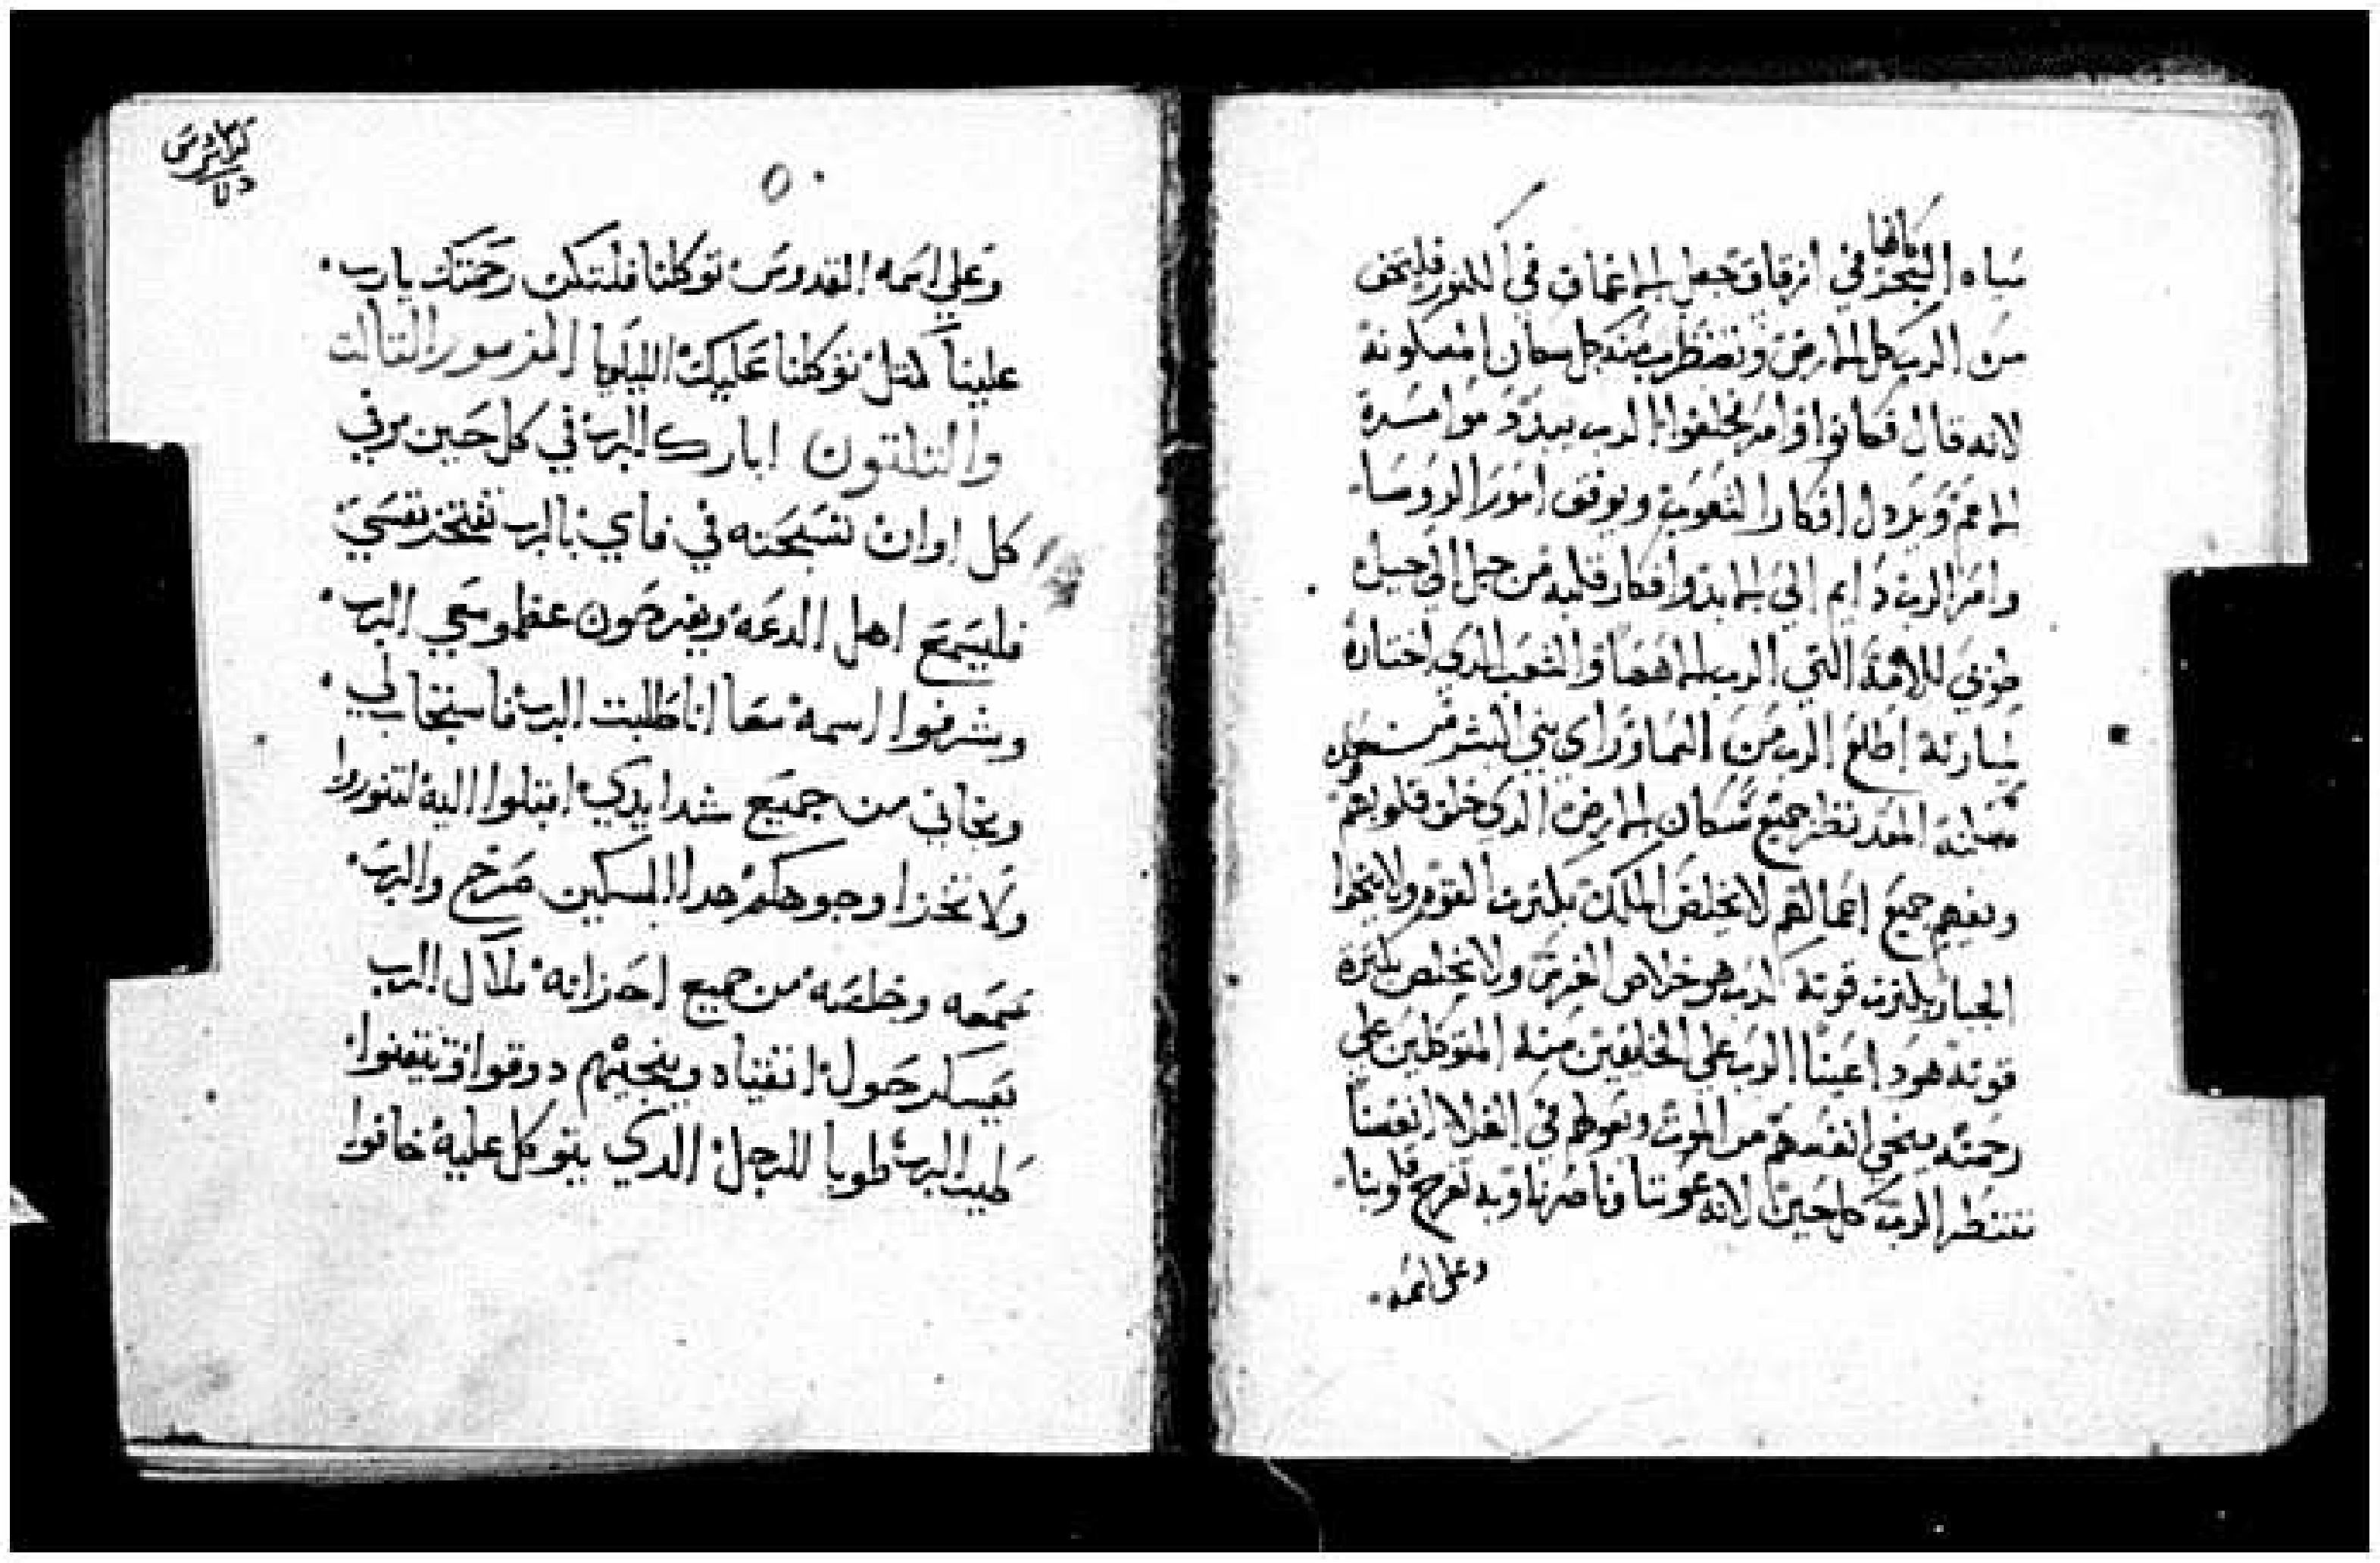 كانها
مياه البحر في ازقاق جعل الاعماق في الكنوز فليخف
من الرب كل الارض وتضطرب منه كل سكان المسكونة
لانه قال فكانوا وامر فخلقوا الرب يبدد موامرة
الامم ويردل افكار الشعوب ويوفق امور الروسا
وامر الرب دايم الى الابد وافكار قلبه من جيل الى جيل
طوبى للامة التي الرب الاهها والشعب الدي اختاره
ميراته اطلع الرب من السما وراى بني البشر من
مسكنه المعد نظر جميع سكان الارض الدي خلق قلوبهم
ويفهم جميع اعمالهم لا يخلص الملك بكترت القوم ولا ينجوا
الجبار بكترت قوته كدب هو خلاص الفرس ولا يخلص بكترة
قوته هود اعينا الرب على الخايفين منه المتوكلين على
رحمته ينجي انفسهم من الموت ويعولهم في الغلا انفسنا
تنتظر الرب كل حين لانه عوننا وناصرنا وبه تفرح قلوبنا
وعلى اسمه
٥٠
وعلى اسمه القدوس توكلنا فلتكن رحمتك يارب
علينا كمتل توكلنا عليك الليلويا المزمور التالت
والتلتون ابارك الرب في كل حين وفي
كل اوان تسبحته في فاي بالرب تفتخر نفسي
فليسمع اهل الدعه ويفرحون عظموا معي الرب
وشرفوا اسمه معا انا طلبت الرب فاستجاب لي
ونجاني من جميع شدايدي اقبلوا اليه لتنوروا
ولا تخزا وجوهكم هدا المسكين صرخ والرب
سمعه وخلصه من جميع احزانه ملاك الرب
يعسكر حول اتقياه وينجيهم دوقوا وتيقنوا
طيب الرب طوبا للرجل الدي يتوكل عليه خافوا